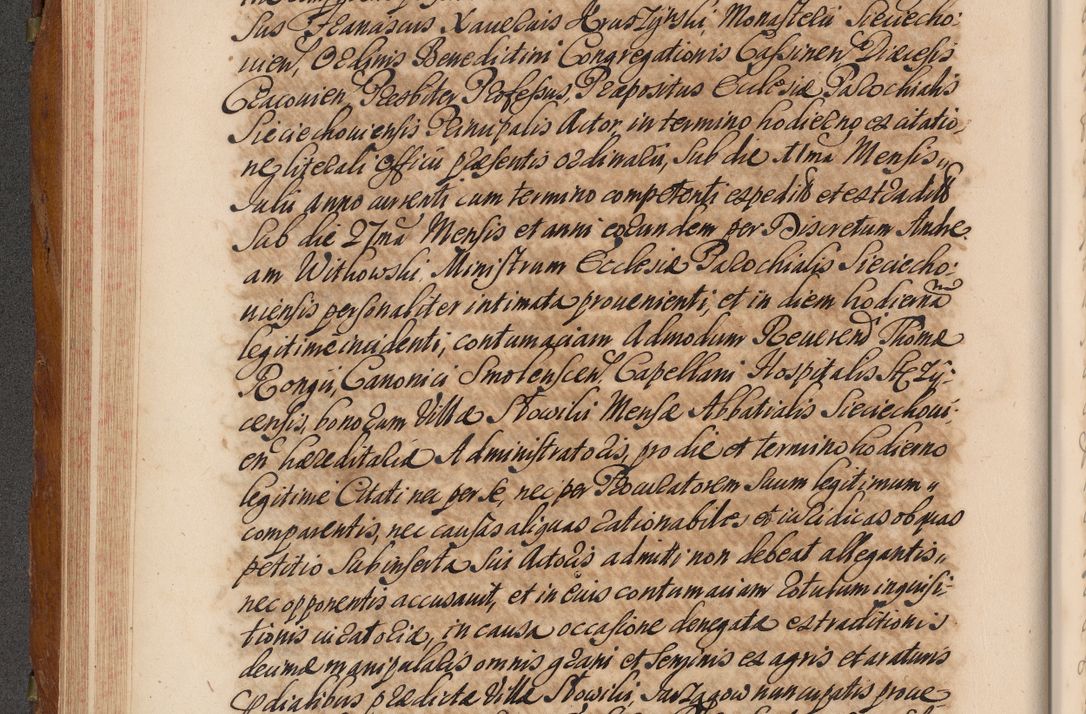 sus Athanasius Xaverius Kraszyński, Monasterii Sieciecho:
vien, Ordinis Benedictini Congregationis Cassinen Diæcesis
Cracovien, Presbiter Professus, Præpositus Ecclesiæ Parochialis
Sieciechoviensis Principalis Actor, in termino hodierno ex citatio,
ne literali Officii præsentis ordinarii, sub die 11ma Mensis
Julii anno currenti cum termino competenti expedito et extradito
sub die 27ma Mensis et anni eorundem per Discretum Andre,
am Witkowski Ministrum Ecclesiæ Parochialis Sieciecho:
viensis personaliter intimata provenienti, et in diem hodiernam
legitime incidenti, contumaciam Admodum Reverendi Thomæ
Rongii, Canonici Smolenscen, Capellani Hospitalis Stęzy:
censis, bonorum Villæ Słowiki Mensæ Abbatialis Sieciechovi:
en hæreditariæ Administratoris, pro die et termino hodierno
legitime Citati nec per se, nec per Procuratorem suum legitimum
comparentis, nec causas aliquas rationabiles et iuridicas ob quas
petitio subinserta sui Actoris admitti non debeat allegantis,,
nec opponentis accusavit, et in eius contumaciam rotulum inquisi:
tionis iuratoriæ, in causa occasione denegatæ extraditionis
decimæ manipularis omnis grani et seminis ex agris et araturis
prædialibus prædictæ Villæ Słowiki, nuncupatis prove